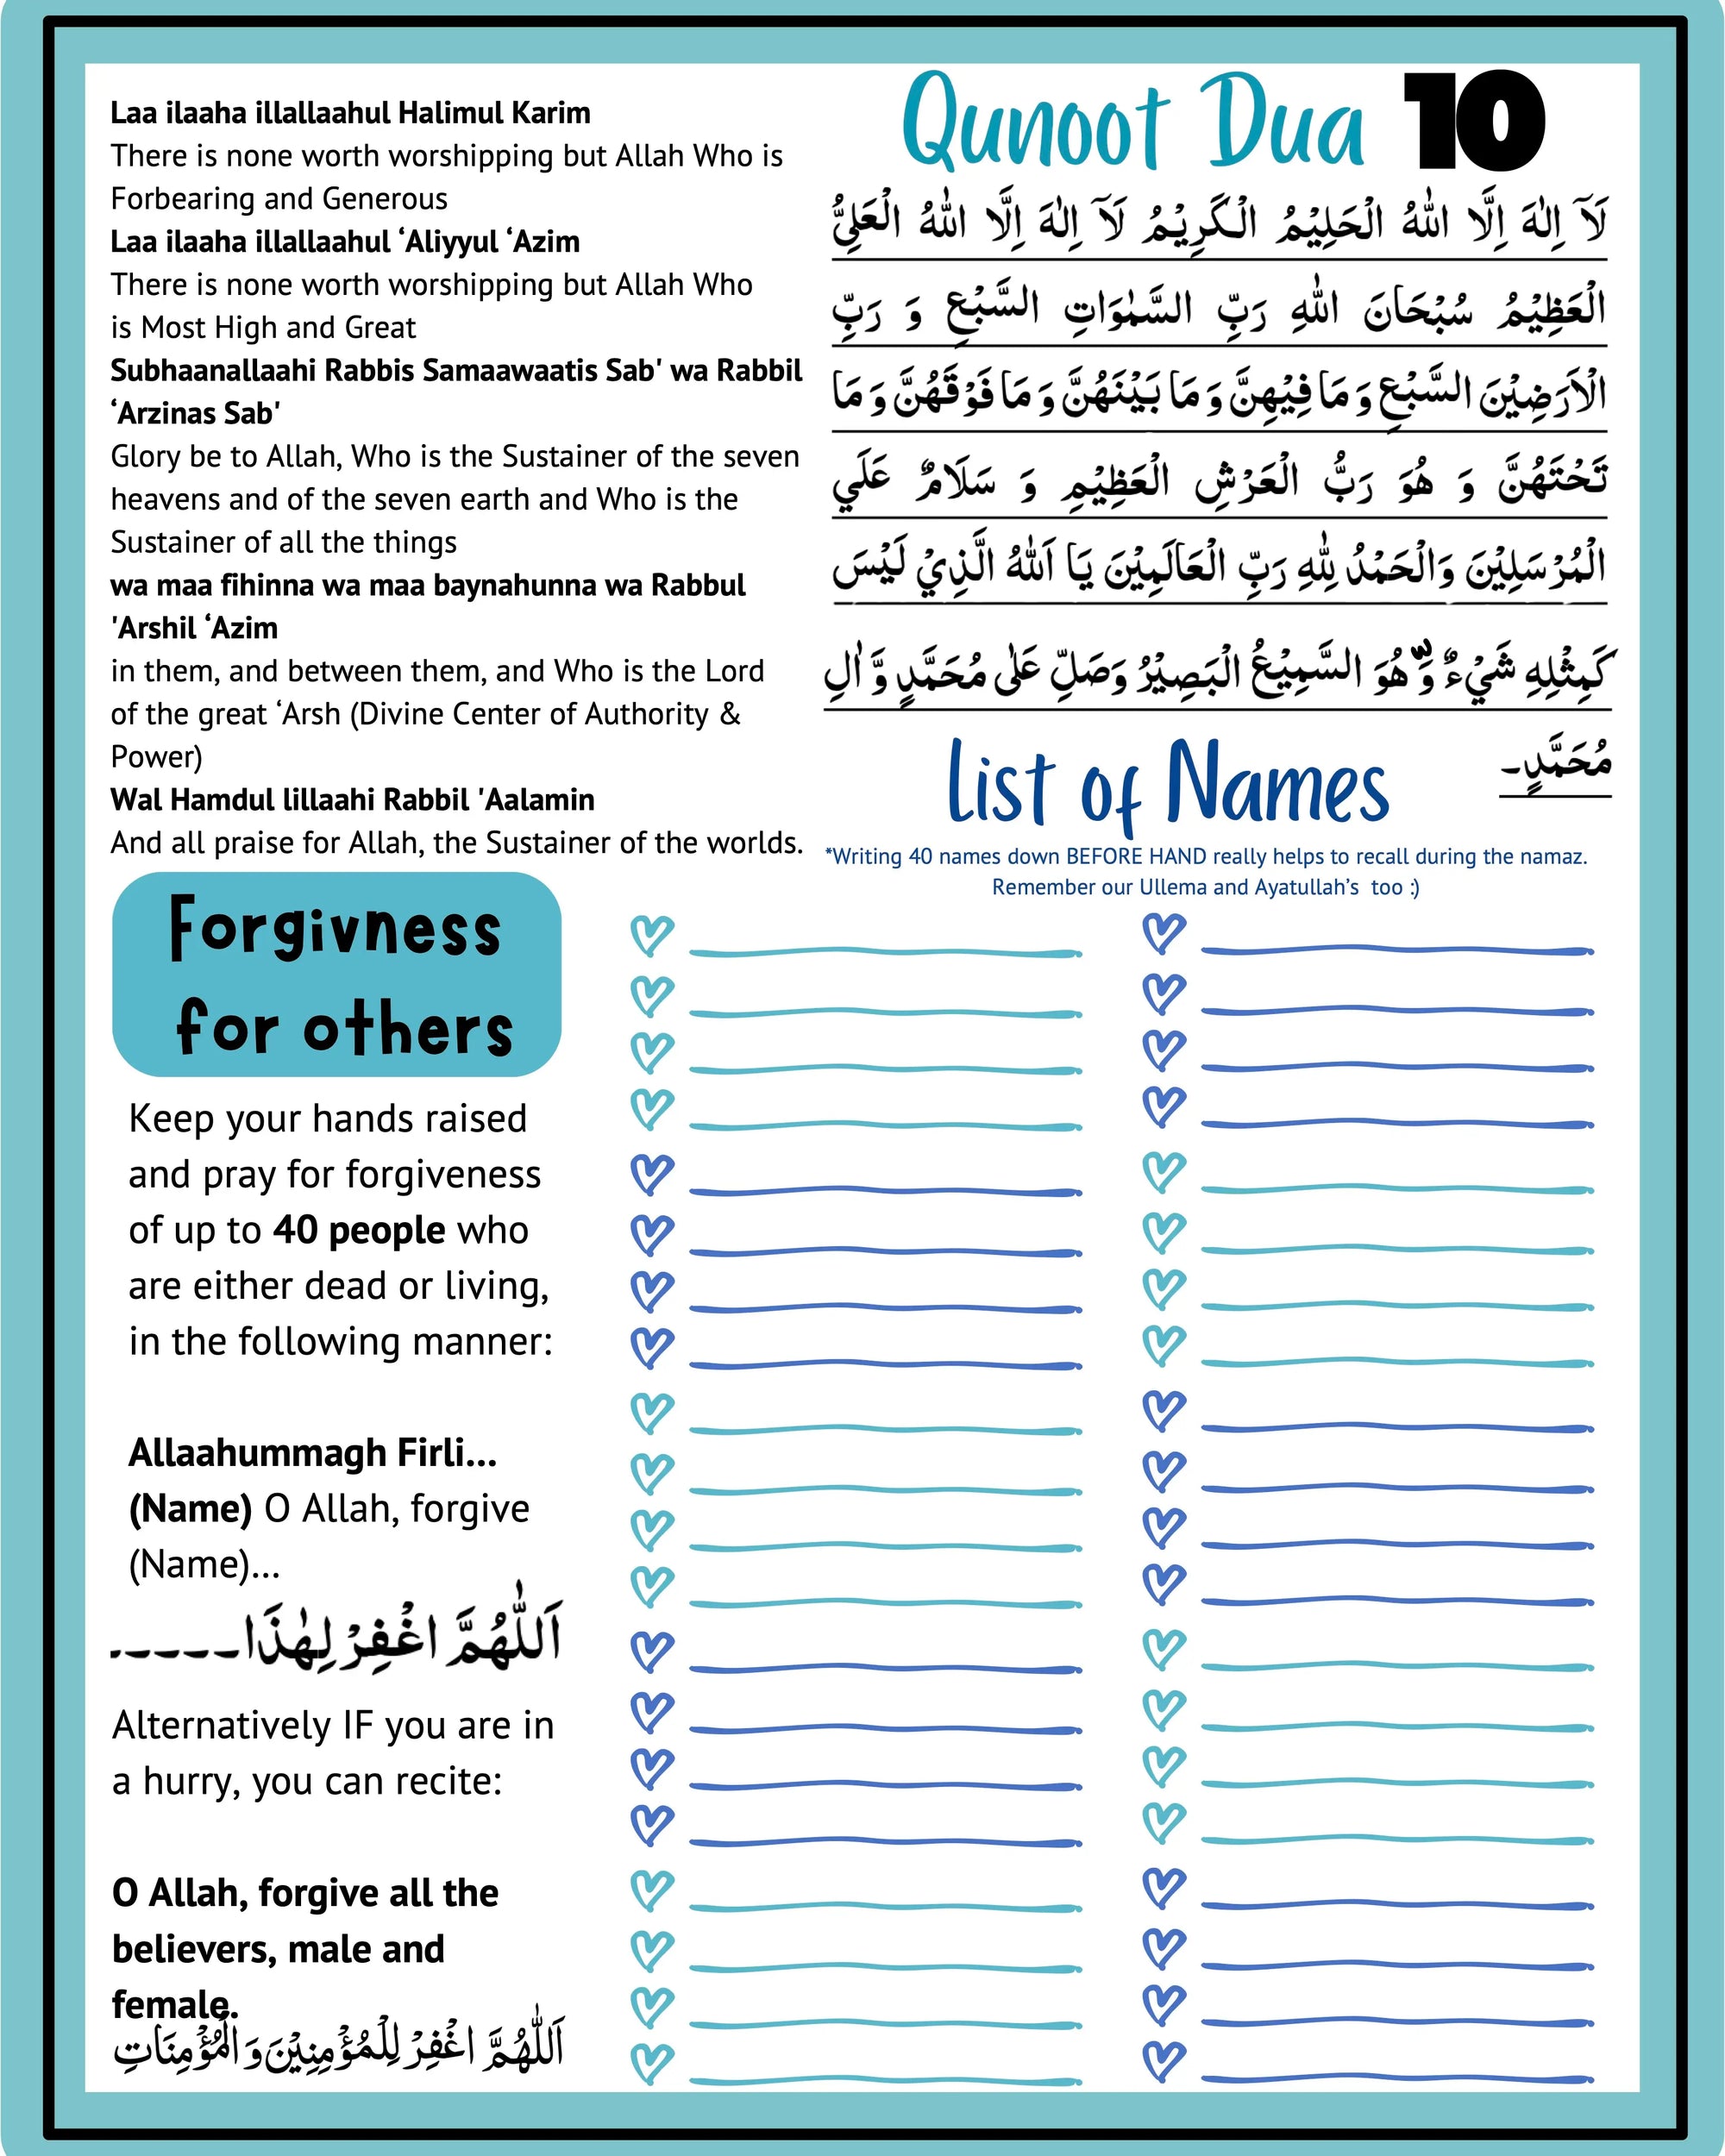 Laa ilaaha illallaahul Halimul Karim
There is none worth worshipping but Allah Who is
Forbearing and Generous
Laa ilaaha illallaahul ‘Aliyyul ‘Azim
There is none worth worshipping but Allah Who
is Most High and Great
Subhaanallaahi Rabbis Samaawaatis Sab' wa Rabbil
‘Arzinas Sab'
Glory be to Allah, Who is the Sustainer of the seven
heavens and of the seven earth and Who is the
Sustainer of all the things
wa maa fihinna wa maa baynahunna wa Rabbul
'Arshil ‘Azim
in them, and between them, and Who is the Lord
of the great ‘Arsh (Divine Center of Authority &
Power)
Wal Hamdul lillaahi Rabbil 'Aalamin
And all praise for Allah, the Sustainer of the worlds.
Qunoot Dua 10
لَآ اِلٰهَ اِلَّا اللهُ الْحَلِيْمُ الْكَرِيْمُ لَآ اِلٰهَ اِلَّا اللهُ الْعَلِيُّ
الْعَظِيْمُ سُبْحَانَ اللهِ رَبِّ السَّمٰوَاتِ السَّبْعِ وَ رَبِّ
الْاَرَضِيْنَ السَّبْعِ وَ مَا فِيْهِنَّ وَ مَا بَيْنَهُنَّ وَ مَا فَوْقَهُنَّ وَ مَا
تَحْتَهُنَّ وَ هُوَ رَبُّ الْعَرْشِ الْعَظِيْمِ وَ سَلَامٌ عَلَي
الْمُرْسَلِيْنَ وَالْحَمْدُ لِلّٰهِ رَبِّ الْعَالَمِيْنَ يَا اَللهُ الَّذِيْ لَيْسَ
كَمِثْلِهِ شَيْءٌ وَّهُوَ السَّمِيْعُ الْبَصِيْرُ وَصَلِّ عَلٰى مُحَمَّدٍ وَّ اٰلِ
مُحَمَّدٍ۔
List of Names
*Writing 40 names down BEFORE HAND really helps to recall during the namaz.
Remember our Ullema and Ayatullah’s too :)
Forgivness
for others
Keep your hands raised
and pray for forgiveness
of up to 40 people who
are either dead or living,
in the following manner:
Allaahummagh Firli...
(Name) O Allah, forgive
(Name)...
اَللّٰهُمَّ اغْفِرْ لِهٰذَا۔۔۔۔۔
Alternatively IF you are in
a hurry, you can recite:
O Allah, forgive all the
believers, male and
female.
اَللّٰهُمَّ اغْفِرْ لِلْمُؤْمِنِيْنَ وَ الْمُؤْمِنَاتِ